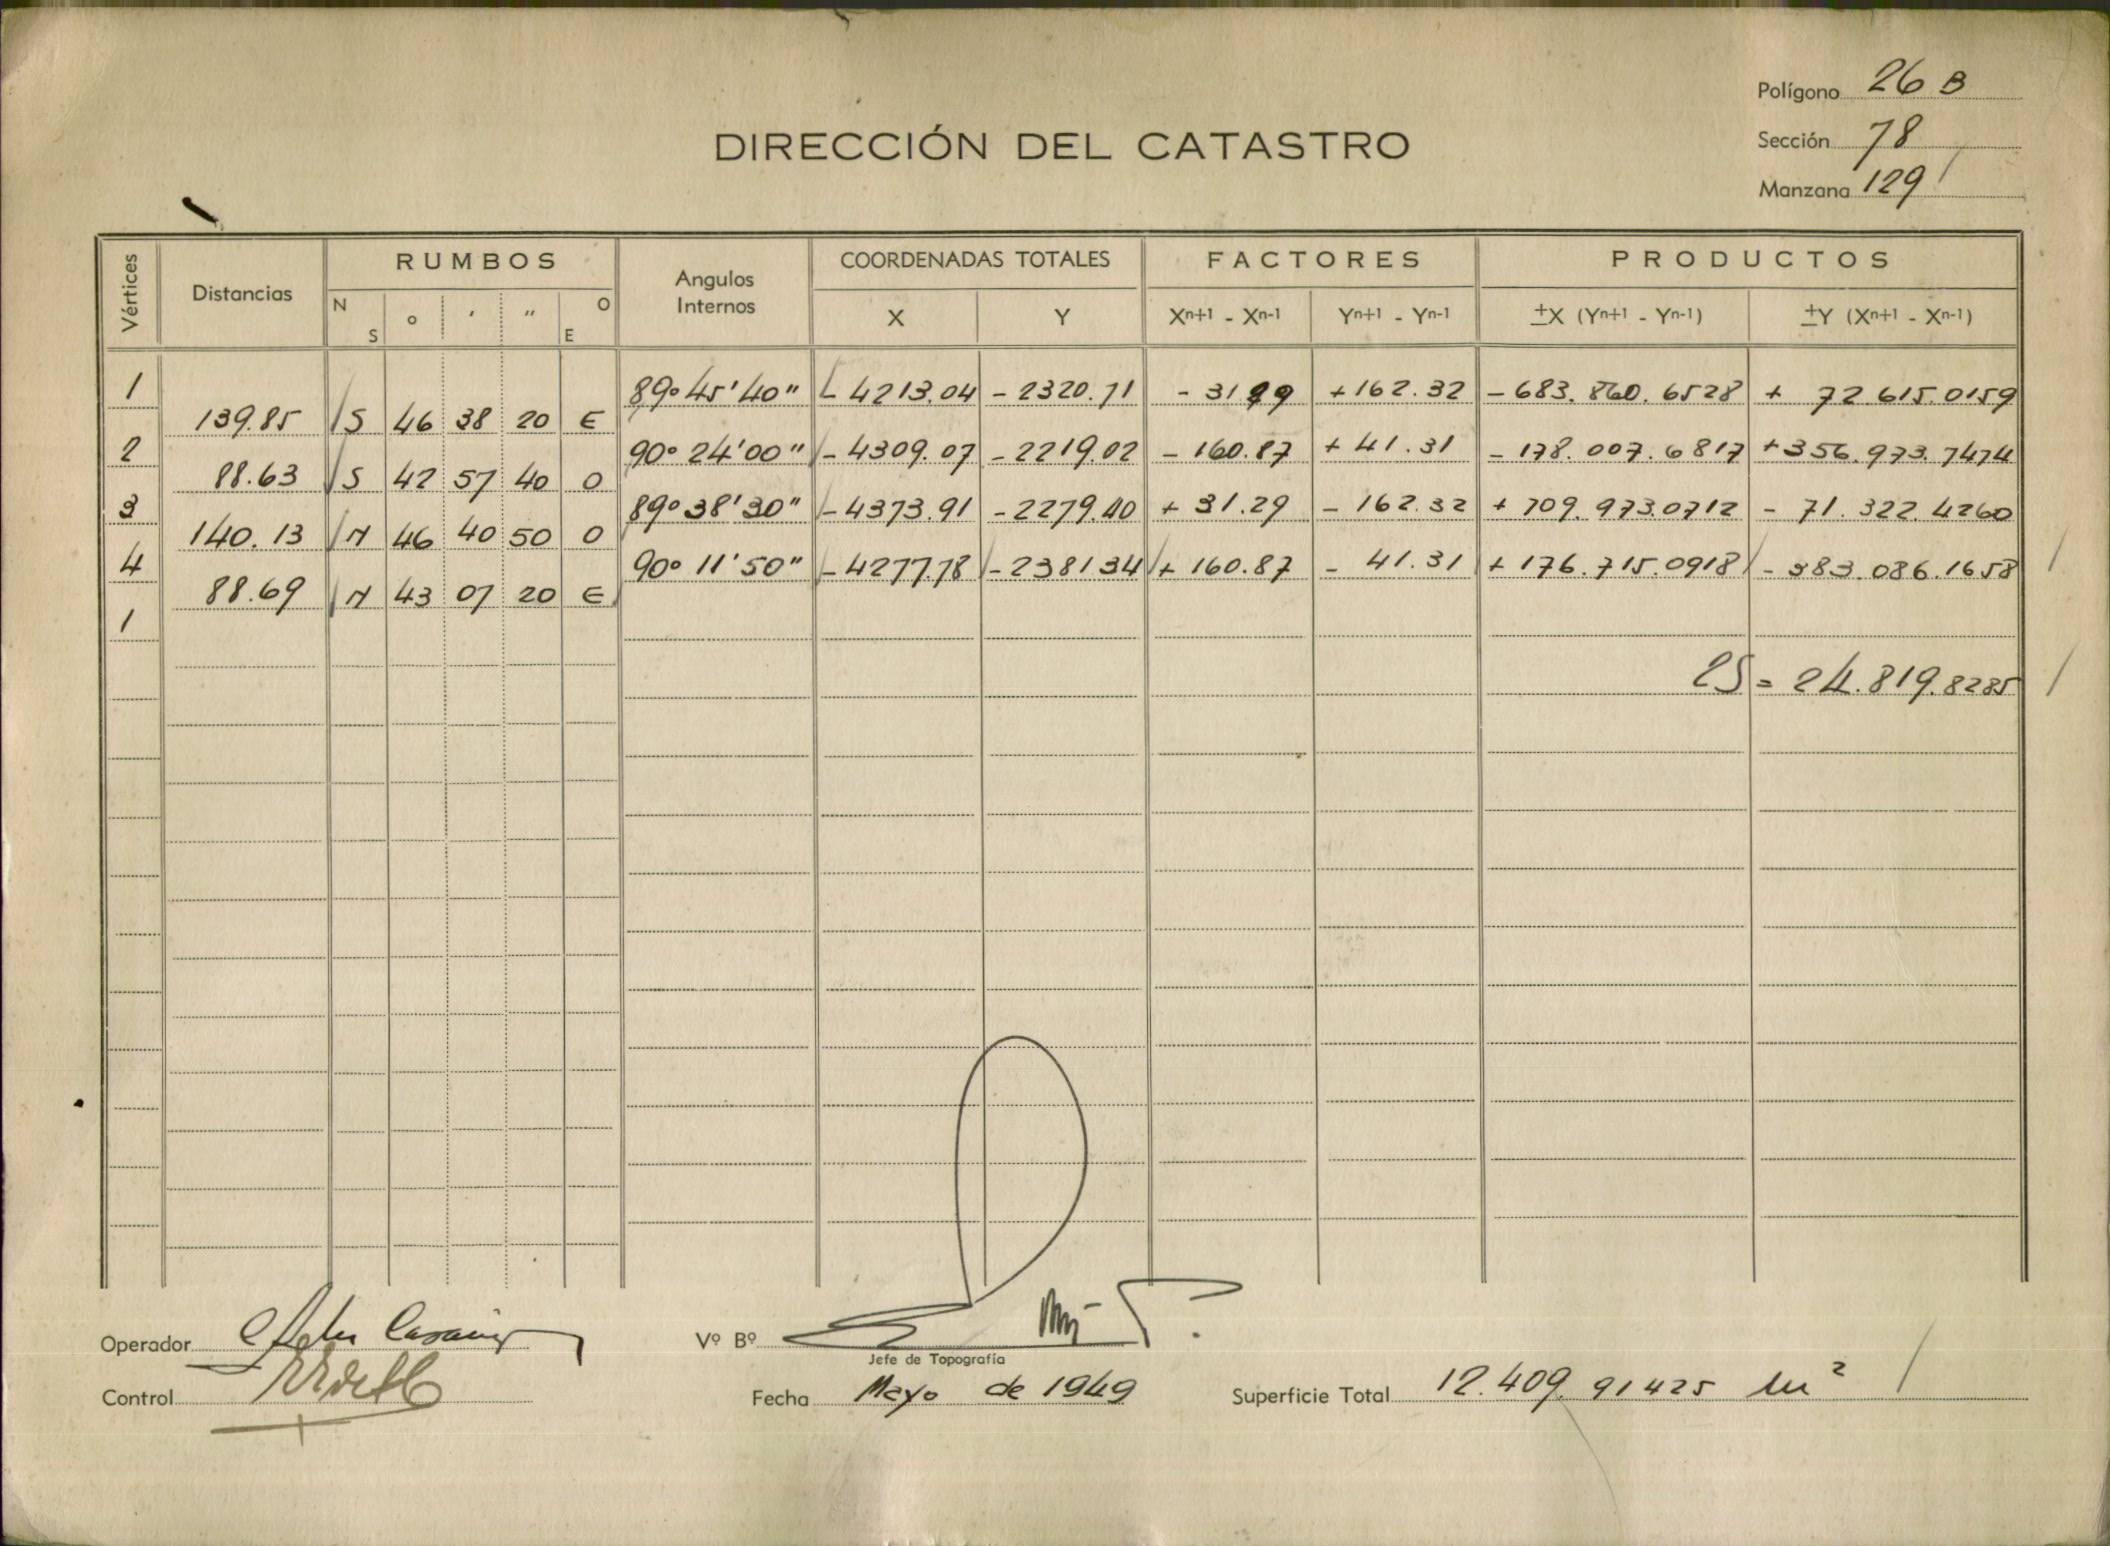 Polígono 26 B
DIRECCIÓN DEL CATASTRO
Sección 78
Manzana 129
Vértices Distancias RUMBOS Angulos Internos COORDENADAS TOTALES FACTORES PRODUCTOS
N S ° ' " O E X Y Xn+1 - Xn-1 Yn+1 - Yn-1 ±X (Yn+1 - Yn-1) ±Y (Xn+1 - Xn-1)
1 89° 45' 40" - 4213.04 - 2320.71 - 31 29 + 162.32 - 683.860.6528 + 72.615.0159
139.85 S 46 38 20 E
2 90° 24' 00" - 4309.07 - 2219.02 - 160.87 + 41.31 - 178.007.6817 + 356.973.7474
88.63 S 42 57 40 O
3 89° 38' 30" - 4373.91 - 2279.40 + 31.29 - 162.32 + 709.973.0712 - 71.322.4260
140.13 N 46 40 50 O
4 90° 11' 50" - 4277.78 - 2381 34 + 160.87 - 41.31 + 176.715.0918 - 383.086.1658
88.69 N 43 07 20 E
1
2S = 24.819.8285
Operador
Vº Bº
Jefe de Topografía
Control
Fecha Mayo de 1949
Superficie Total 12.409.91425 m²